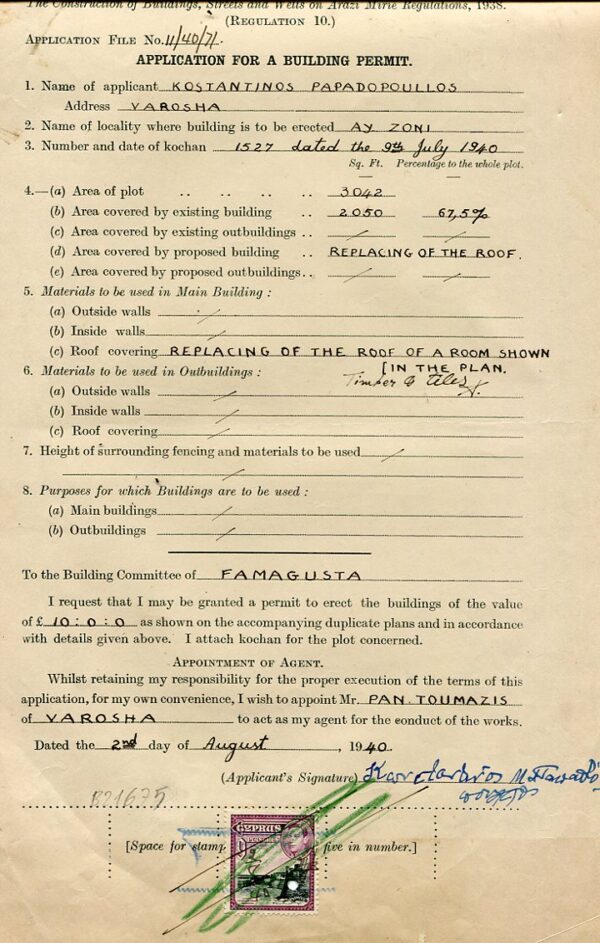 The Construction of Buildings, Streets and Wells on Arazi Mirie Regulations, 1938.
(REGULATION 10.)
APPLICATION FILE No. 11/40/71.
APPLICATION FOR A BUILDING PERMIT.
1. Name of applicant KOSTANTINOS PAPADOPOULLOS
Address VAROSHA
2. Name of locality where building is to be erected AY ZONI
3. Number and date of kochan 1527 dated the 9th July 1940
Sq. Ft. Percentage to the whole plot.
4.—(a) Area of plot .. .. .. .. 3042
(b) Area covered by existing building .. 2050 67,5%
(c) Area covered by existing outbuildings ..
(d) Area covered by proposed building .. REPLACING OF THE ROOF.
(e) Area covered by proposed outbuildings ..
5. Materials to be used in Main Building :
(a) Outside walls
(b) Inside walls
(c) Roof covering REPLACING OF THE ROOF OF A ROOM SHOWN
[IN THE PLAN.
6. Materials to be used in Outbuildings : Timber & tiles
(a) Outside walls
(b) Inside walls
(c) Roof covering
7. Height of surrounding fencing and materials to be used
8. Purposes for which Buildings are to be used :
(a) Main buildings
(b) Outbuildings
To the Building Committee of FAMAGUSTA
I request that I may be granted a permit to erect the buildings of the value
of £ 10 : 0 : 0 as shown on the accompanying duplicate plans and in accordance
with details given above. I attach kochan for the plot concerned.
APPOINTMENT OF AGENT.
Whilst retaining my responsibility for the proper execution of the terms of this
application, for my own convenience, I wish to appoint Mr. PAN. TOUMAZIS
of VAROSHA to act as my agent for the conduct of the works.
Dated the 2nd day of August, 1940.
(Applicant's Signature)
B21675
[Space for stamp five in number.]
CYPRUS